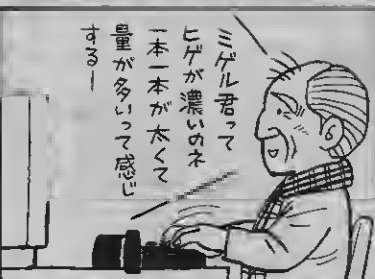 ミゲル君って
ヒゲが濃いのネ
一本一本が太くて
量が多いって感じ
するー